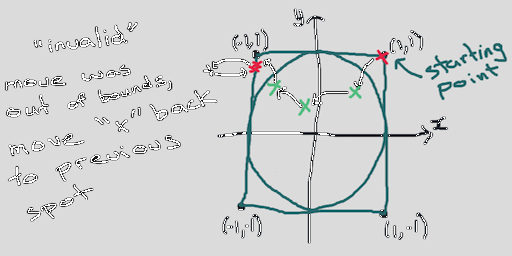 "invalid"
move was
out of bounds,
move "x" back
to previous
spot
y
(-1,1)
(1,1)
starting
point
x
(-1,-1)
(1,-1)